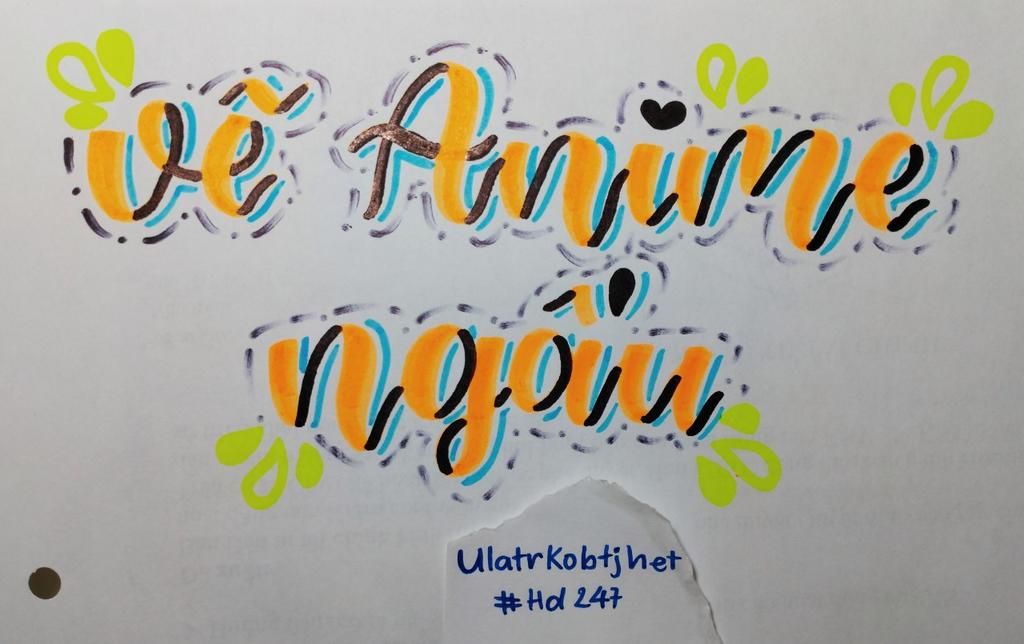 vẽ Anime
ngầu
UlatrKobtjhet
#Hd 247